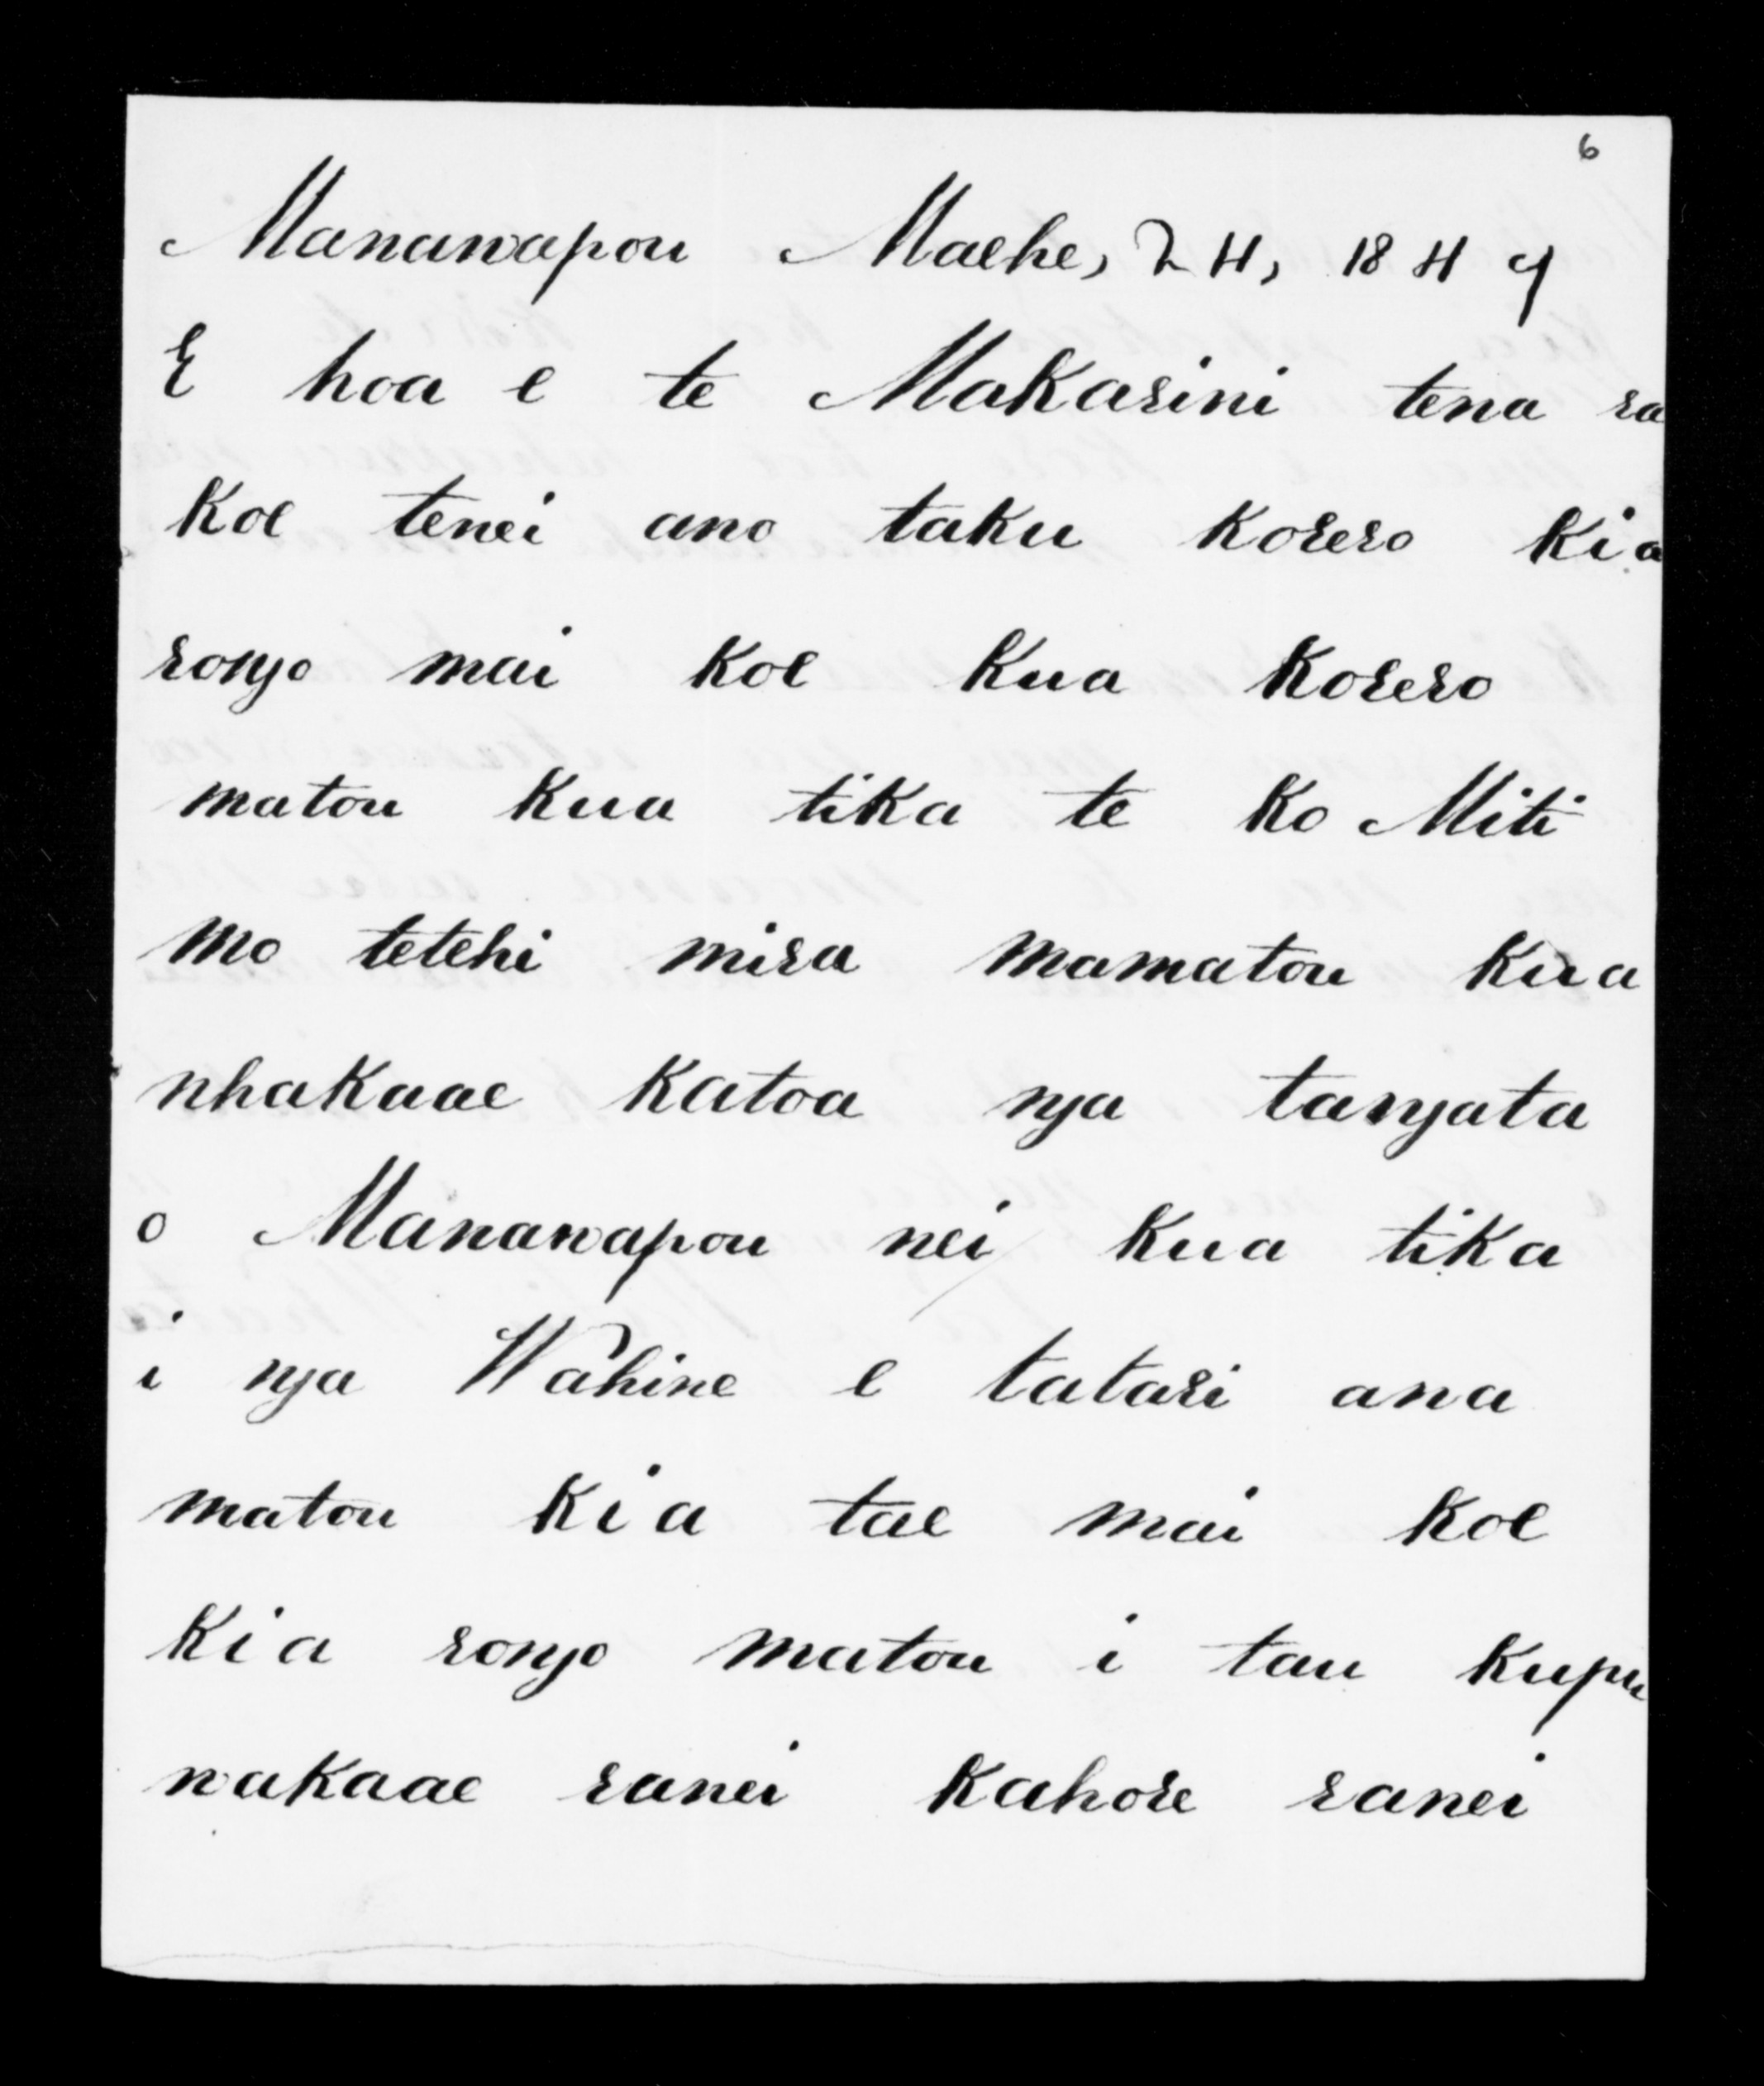 6
Manawapou Maehe, 24, 1849
E hoa e te Makarini tena ra
Koe tenei ano taku korero Kia
rongo mai Koe Kua Korero
matou Kua tika te Ko Miti
mo tetehi mira mamatou Kua
whakaae Katoa nga tangata
o Manawapou nei Kua tika
i nga Wahine e tatari ana
matou Kia tae mai Koe
Kia rongo matou i tau Kupu
wakaae ranei Kahore ranei